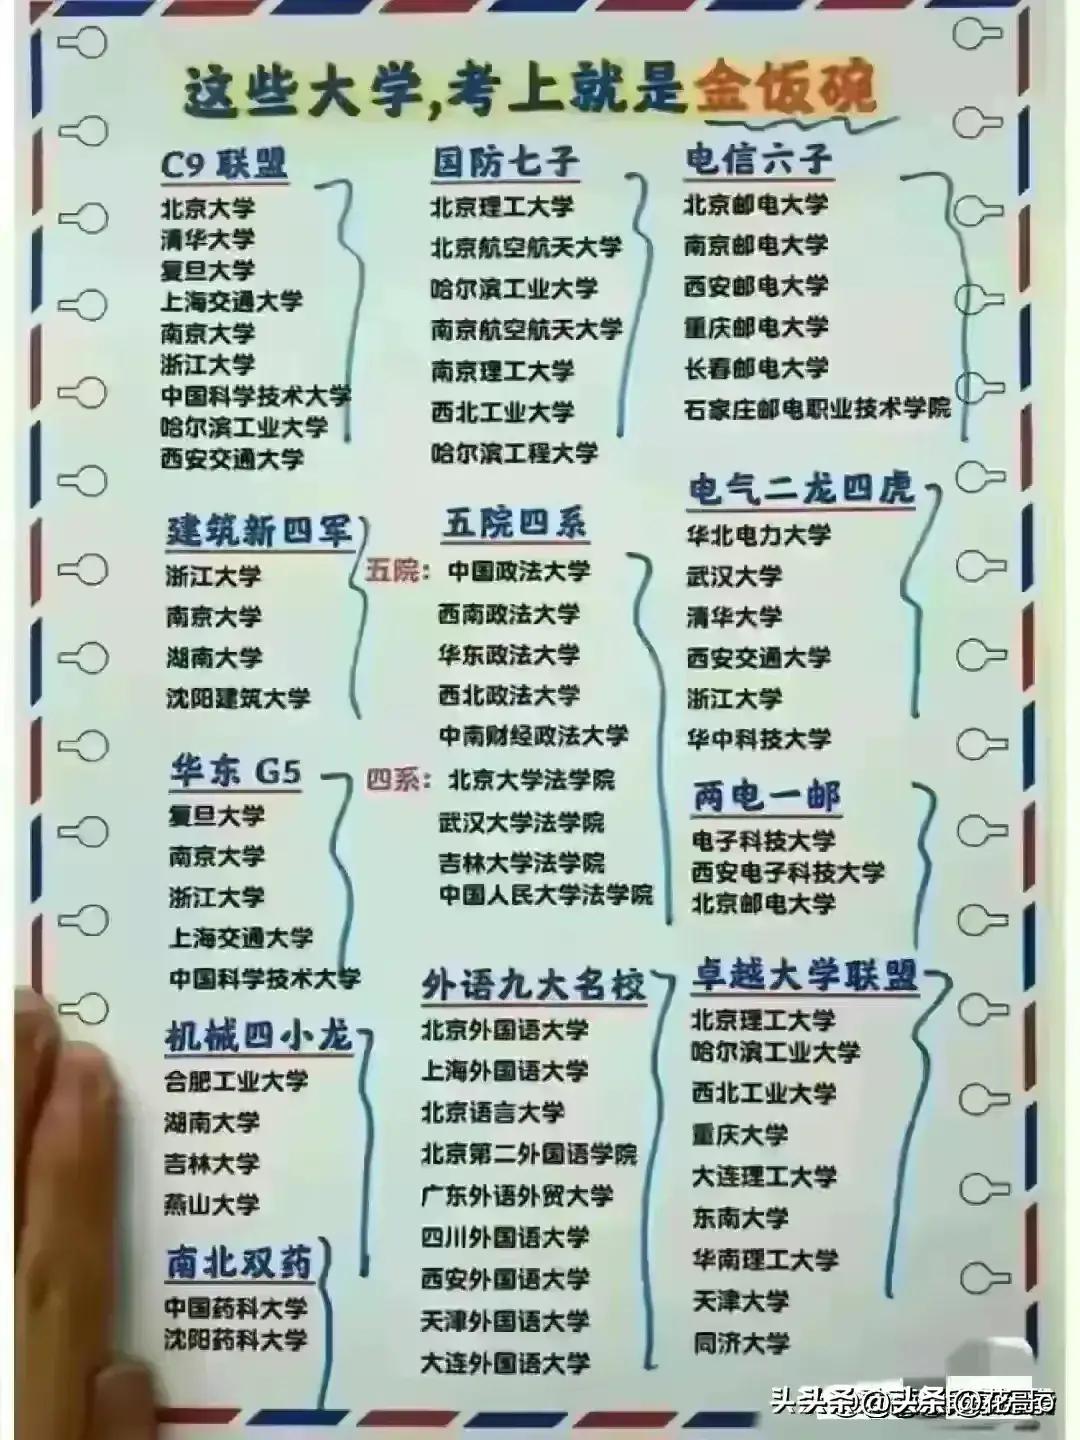 这些大学,考上就是金饭碗
C9 联盟
北京大学
清华大学
复旦大学
上海交通大学
南京大学
浙江大学
中国科学技术大学
哈尔滨工业大学
西安交通大学
国防七子
北京理工大学
北京航空航天大学
哈尔滨工业大学
南京航空航天大学
南京理工大学
西北工业大学
哈尔滨工程大学
电信六子
北京邮电大学
南京邮电大学
西安邮电大学
重庆邮电大学
长春邮电大学
石家庄邮电职业技术学院
建筑新四军
浙江大学
南京大学
湖南大学
沈阳建筑大学
五院四系
五院: 中国政法大学
西南政法大学
华东政法大学
西北政法大学
中南财经政法大学
四系: 北京大学法学院
武汉大学法学院
吉林大学法学院
中国人民大学法学院
电气二龙四虎
华北电力大学
武汉大学
清华大学
西安交通大学
浙江大学
华中科技大学
华东 G5
复旦大学
南京大学
浙江大学
上海交通大学
中国科学技术大学
两电一邮
电子科技大学
西安电子科技大学
北京邮电大学
机械四小龙
合肥工业大学
湖南大学
吉林大学
燕山大学
南北双药
中国药科大学
沈阳药科大学
外语九大名校
北京外国语大学
上海外国语大学
北京语言大学
北京第二外国语学院
广东外语外贸大学
四川外国语大学
西安外国语大学
天津外国语大学
大连外国语大学
卓越大学联盟
北京理工大学
哈尔滨工业大学
西北工业大学
重庆大学
大连理工大学
东南大学
华南理工大学
天津大学
同济大学